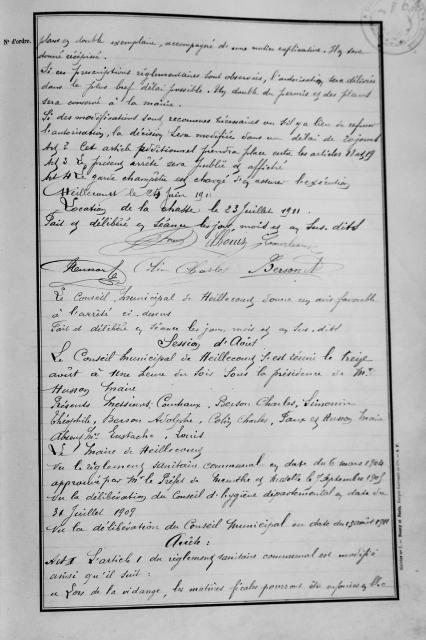 N° d'ordre.
plans en double exemplaire, accompagné de une notice explicative. Il en sera
donné récépissé.
Si ces prescriptions règlementaires sont observées, l'autorisation sera délivrée
dans le plus bref délai possible. Un double du permis et des plans
sera conservé à la mairie.
Si des modifications sont reconnues nécessaires ou s'il y a lieu de refuser
l'autorisation, la décision sera modifiée dans un délai de 20 jours
Art 2 Cet article additionnel prendra place entre les articles
Art 3 Le présent arrêté sera publié et affiché
Art 4 Le garde champêtre est chargé d'en assurer l'exécution
Heillecourt le 24 Juin 1911
Location de la chasse le 23 Juillet 1911.
Fait et délibéré en séance les jour, mois et an sus. dits
Husson Colin Charles Berson A
Le Conseil Municipal de Heillecourt donne un avis favorable
à l'arrêté ci-dessus
Fait et délibéré en séance les jour, mois et an sus. dits
Session d'Août
Le Conseil Municipal de Heillecourt s'est réuni le treize
août à une heure du soir sous la présidence de Mr
Husson Maire
Présents Messieurs Combaux, Berson Charles, Simonin
Théophile, Berson Adolphe, Colin Charles, Faux et Husson Maire
Absent Mr Eustache, Louis
Le Maire de Heillecourt
Vu le règlement sanitaire communal en date du 6 mars 1904
approuvé par Mr le Préfet de Meurthe et Moselle le 7 Septembre 1905
Vu la délibération du Conseil d'hygiène départemental en date du
31 Juillet 1909
Vu la délibération du Conseil Municipal en date du 13 août 1911
Arrête:
Art 1 L'article 1 du règlement sanitaire communal est modifié
ainsi qu'il suit:
" Lors de la vidange, les matières fécales pourront être enfouies